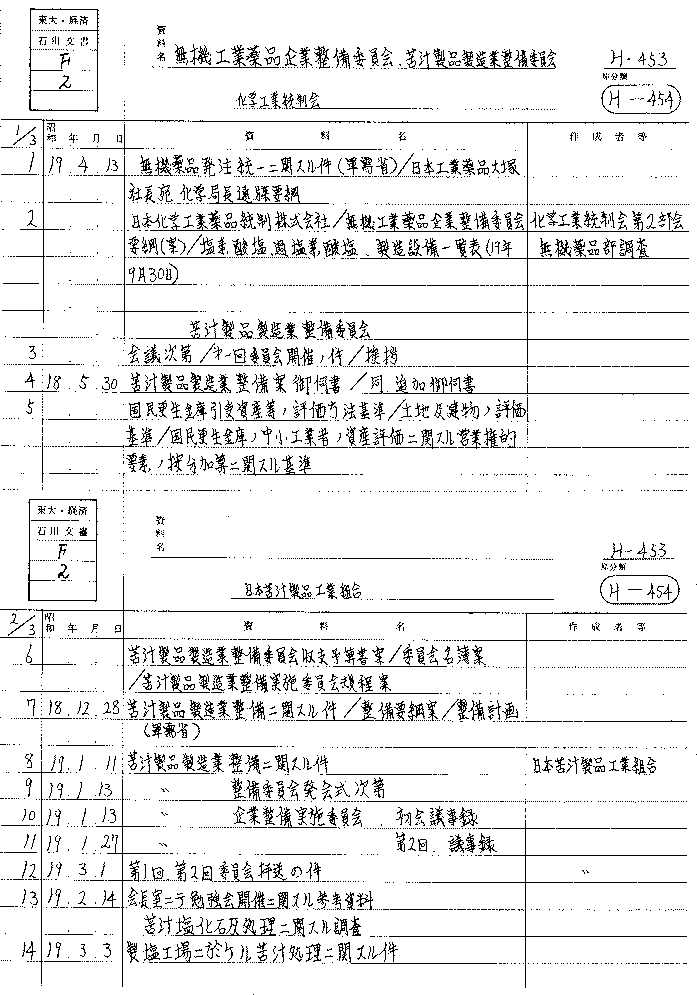 東大・経済
石川文書
F
2
資料名
無機工業薬品企業整備委員会、苦汁製品製造業整備委員会
化学工業統制会
H・453
庫分類
H—454
1/3 昭和 年 月 日 資料名 作成者等
1 19.4.13 無機薬品発注統一ニ関スル件(軍需省)/日本工業薬品大塚
社長宛 化学局長通牒要綱
2 日本化学工業薬品統制株式会社/無機工業薬品企業整備委員会 化学工業統制会第2部会
要綱(案)/塩素酸塩、過塩素酸塩、製造設備一覧表(19年 無機薬品部調査
9月30日)
苦汁製品製造業整備委員会
3 会議次第/才一回委員会開催ノ件/挨拶
4 18.5.30 苦汁製品製造業整備案御伺書/同 追加御伺書
5 国民更生金庫引受資産等ノ評価方法基準/土地及建物ノ評価
基準/国民更生金庫ノ中小工業者ノ資産評価ニ関スル営業権的
要素ノ按分加算ニ関スル基準
東大・経済
石川文書
F
2
資料名
H—453
庫分類
H—454
日本苦汁製品工業組合
2/3 昭和 年 月 日 資料名 作成者等
6 苦汁製品製造業整備委員会収支予算書案/委員会名簿案
/苦汁製品製造業整備実施委員会規程案
7 18.12.28 苦汁製品製造業整備ニ関スル件/整備要綱案/整備計画
(軍需省)
8 19.1.11 苦汁製品製造業整備ニ関スル件 日本苦汁製品工業組合
9 19.1.13 〃 整備委員会発会式次第
10 19.1.13 〃 企業整備実施委員会 初会議事録
11 19.1.27 〃 第2回 議事録
12 19.3.1 第1回、第2回委員会 の件 〃
13 19.2.14 会長室ニテ勉強会開催ニ関スル参考資料
苦汁塩化石灰処理ニ関スル調査
14 19.3.3 製塩工場ニ於ケル苦汁処理ニ関スル件